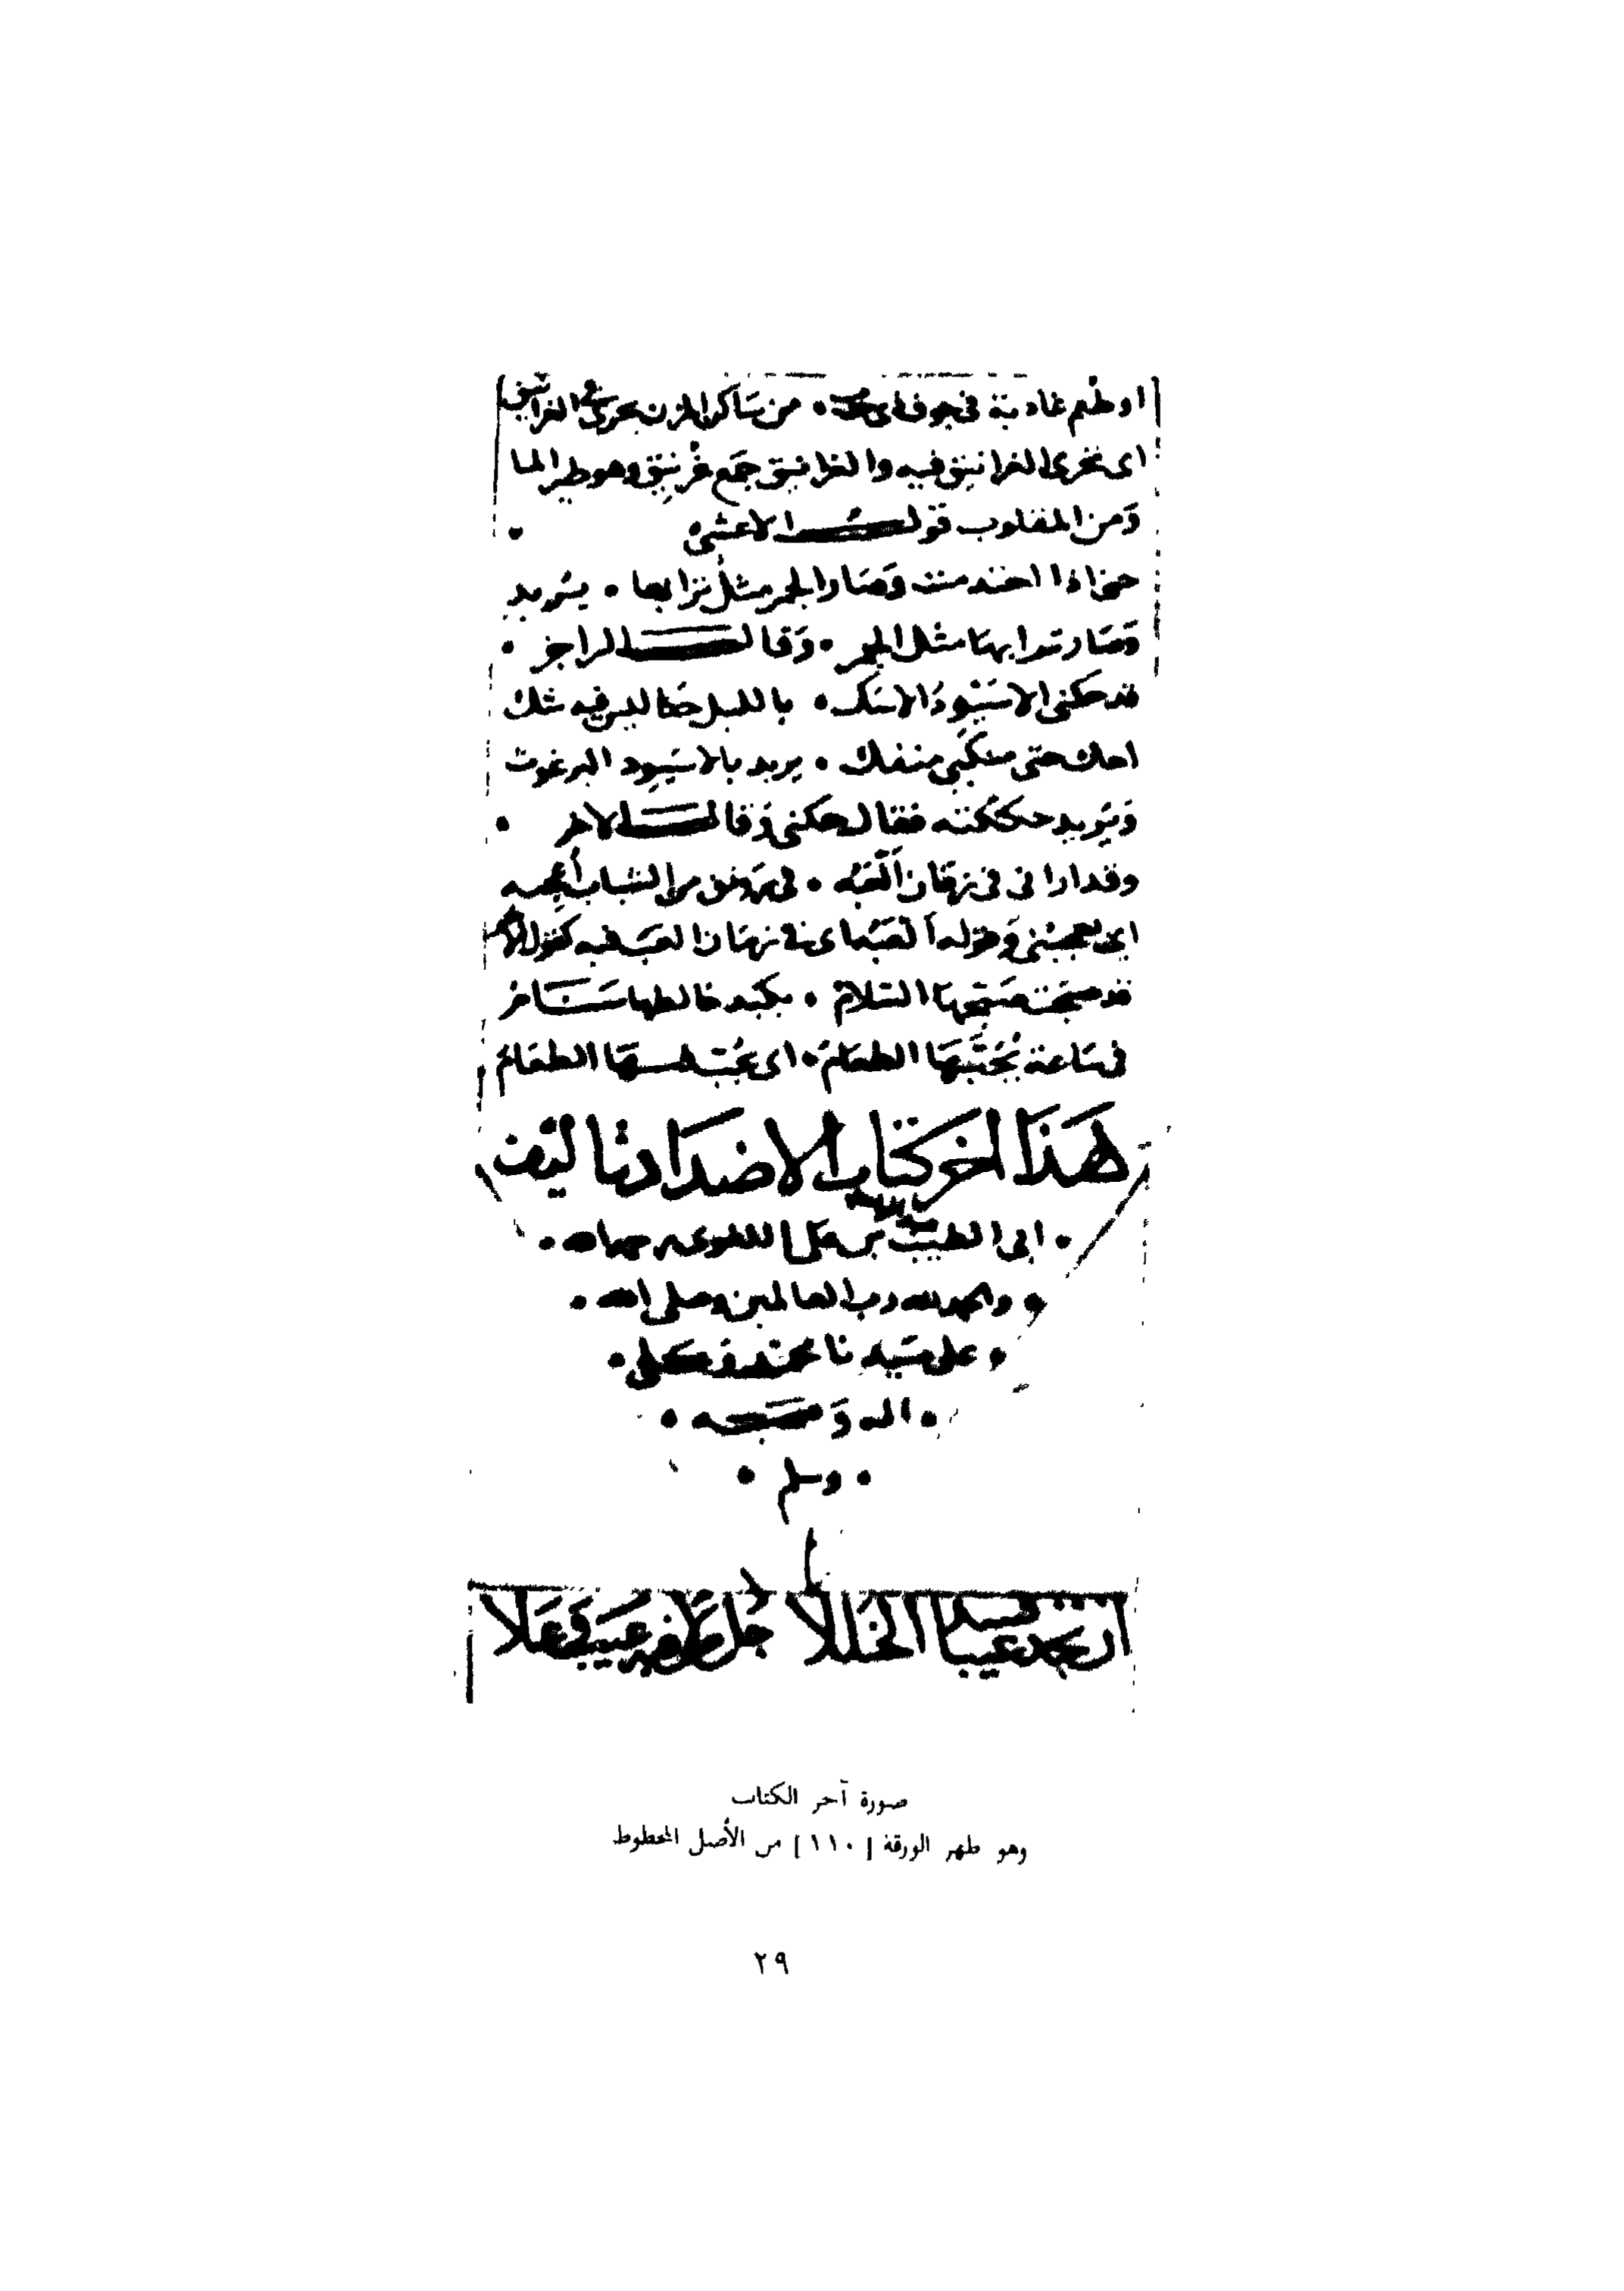 او طعم غادية في جوف ذى حدب • من ساكن المزن يجرى في الغرانيق
اى تجرى الغرانيق فيه والغرانيق جمع غرنيق وهو طير الما
وَمن المقلوب قول الاعشى •
حتى اذا احتدمت وَصَار الجمر مثل ترابها • يُريد
وَصَار ترابها مثل الجمر • وَقال الراجز •
قد حكنى الاسَيْوِدُ الاسَك • بالليل حَكا ليس فيه شك
احك حتى منكبى منفك • يريد بالاسَيوِد البرغوث
وَيُريد حككته فقال حكنى وَقال الاخر •
وقد ارانى فى زمَان اَلْعَبُه • فى رَونق من الشباب أُعجبه
اى يعجبنى وَقوله اَلعَبُه اى في زمَان العَب فيه كقول الاخر
قد صبحت صَبّحها السَّلامُ • بكَبِد خالطها سَنَامُ
فى سَاعة يُحَبّهَا الطعَامُ • اى يُحَب فيهَا الطعَام
هَذا اخر كتاب الاضدَاد تاليف
• ابى الطيب بن على اللغوى رحمه الله •
• والحمد لله رب العالمين وصلى الله •
• على سَيدنا محمّد وَعَلى •
• اله وَصَحبه •
• وسلم •
ان تجد عيبا فسد الخللا جل من لا فيه عيب وَعَلا
صورة آخر الكتاب
وهو ظهر الورقة [ ١١٠ ] من الأصل المخطوط
٢٩